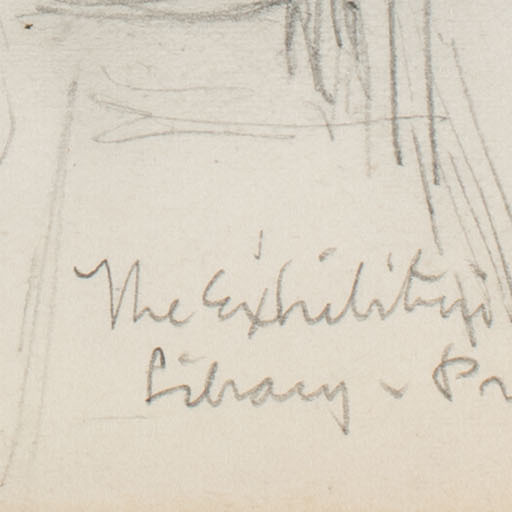 The Exhibition
Library & Pr